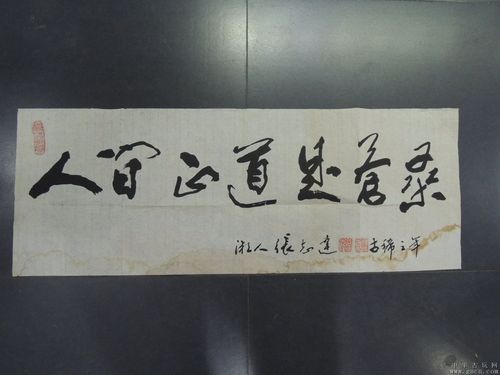 人間正道是蒼桑
湘人張志達 古稀之年
中华古玩网
www.gucn.com